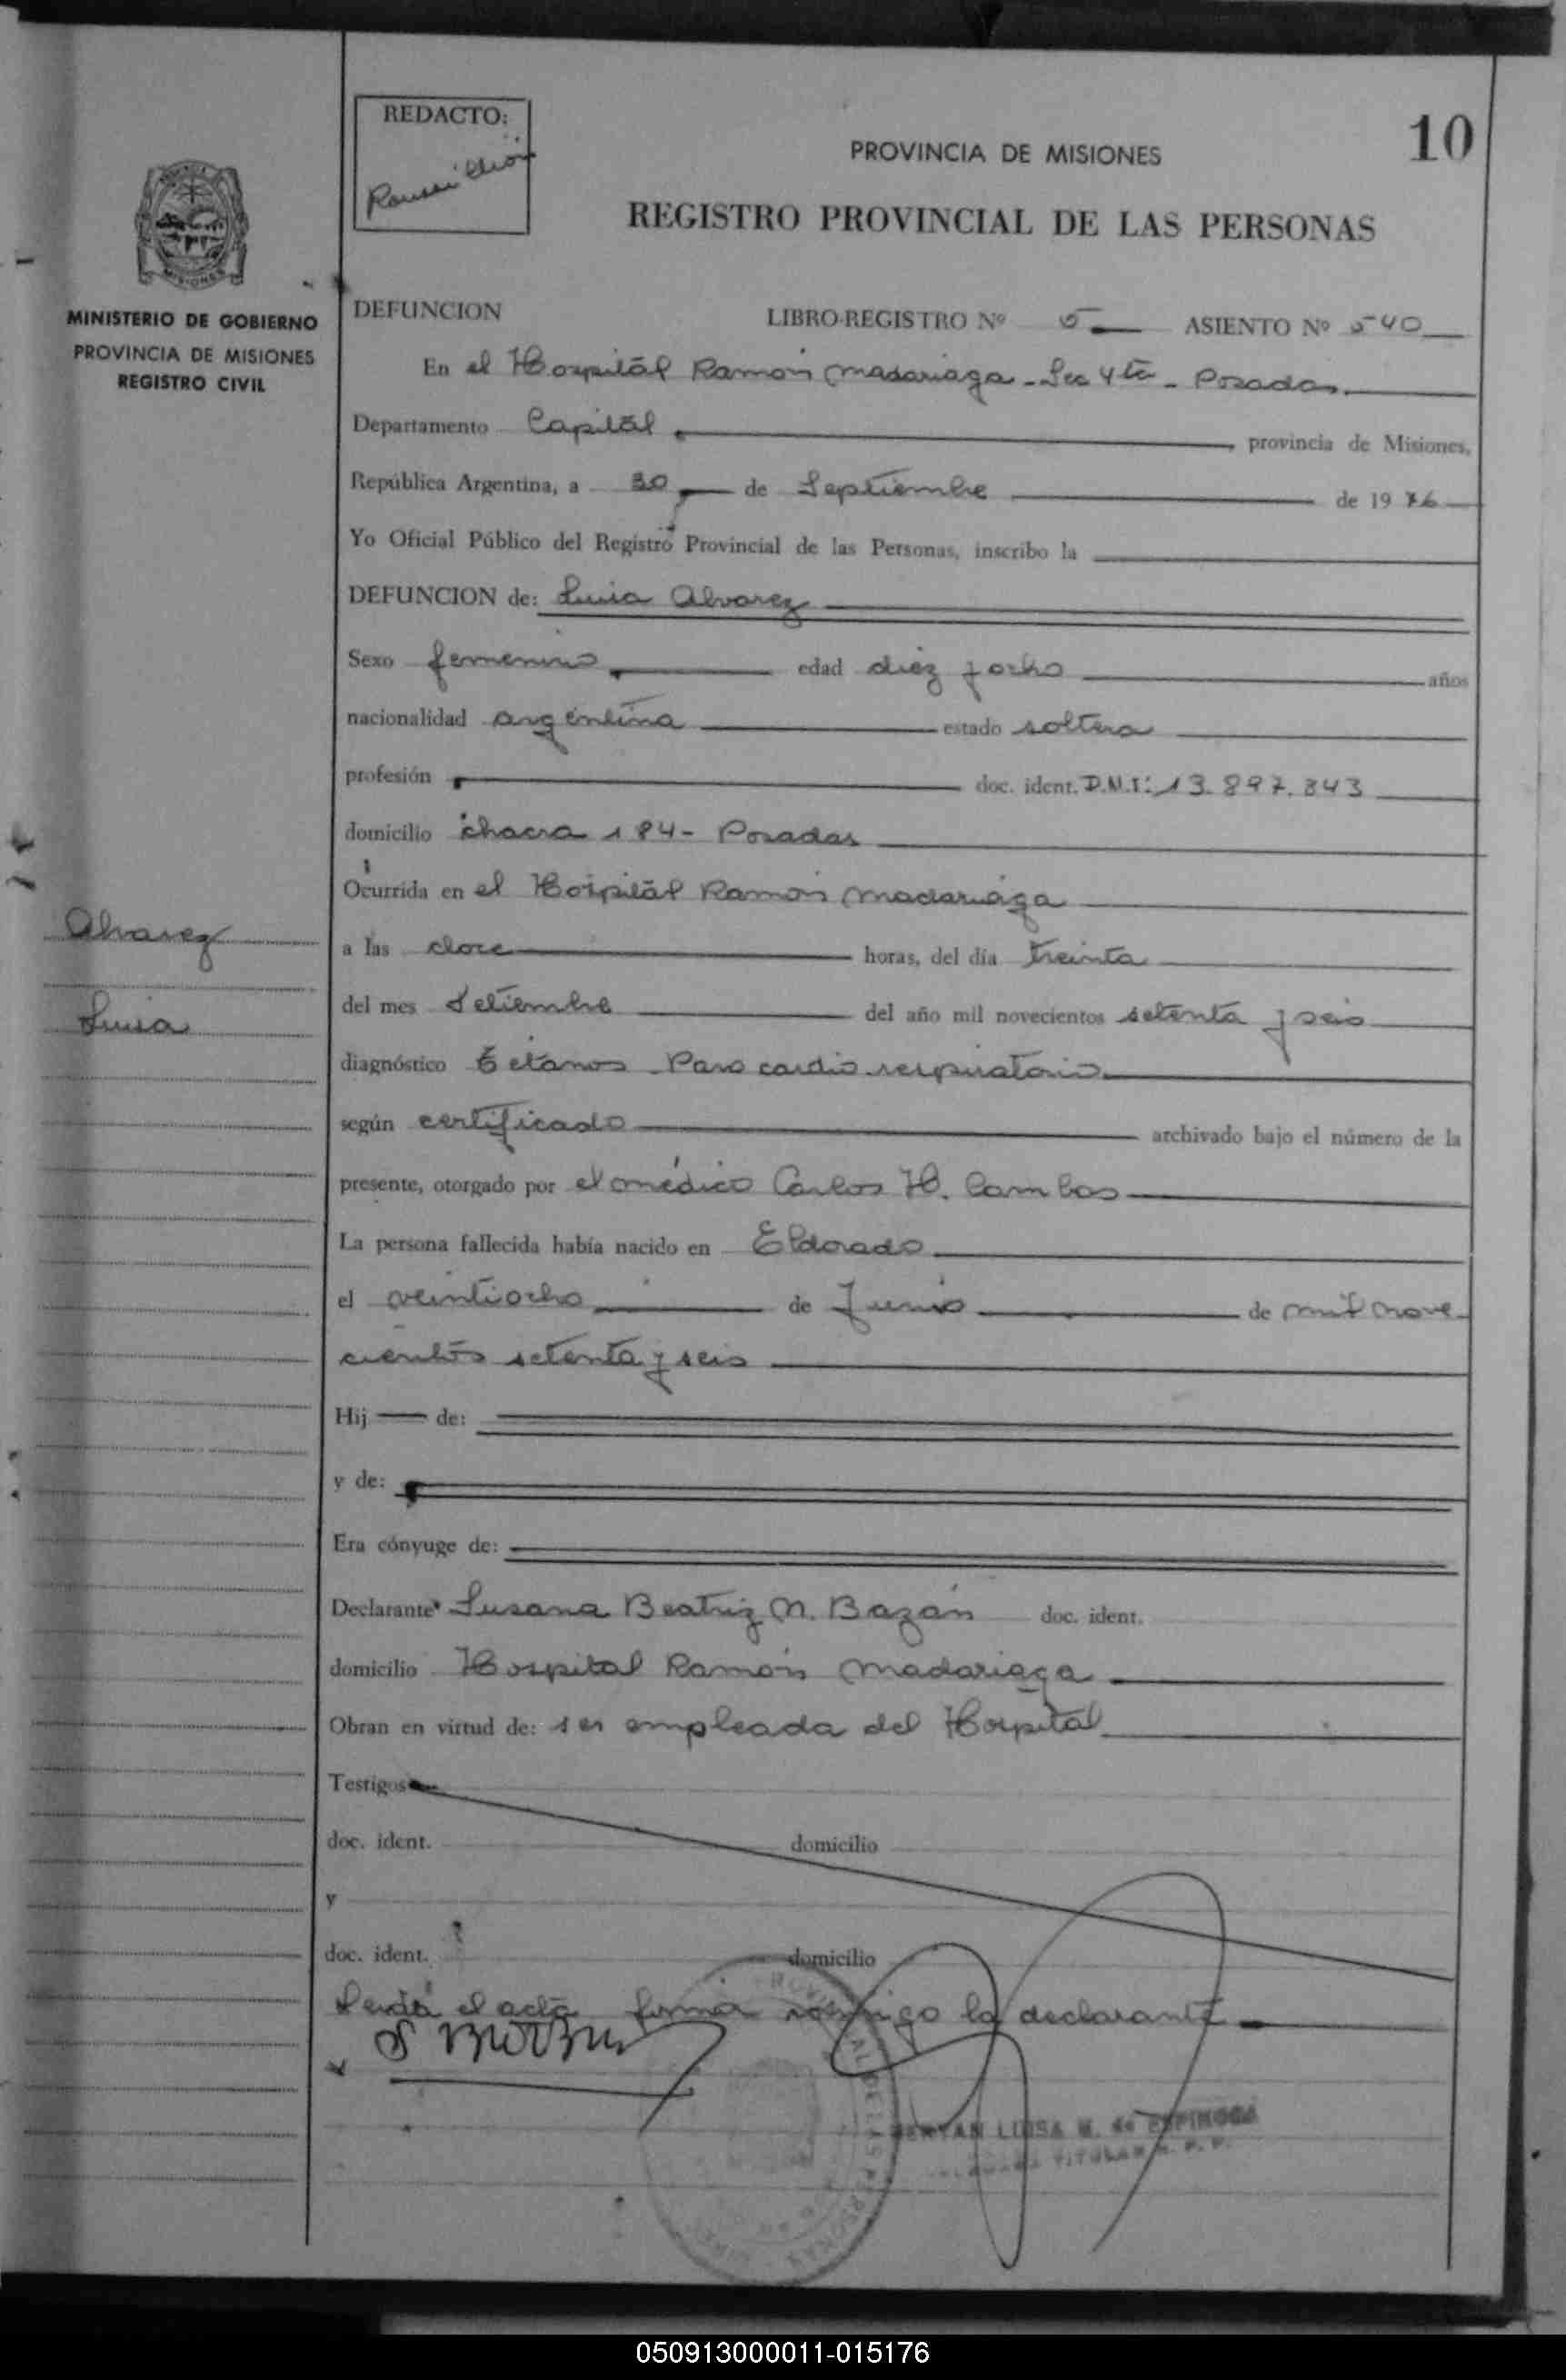 REDACTO:
10
PROVINCIA DE MISIONES
REGISTRO PROVINCIAL DE LAS PERSONAS
MISIONES
MINISTERIO DE GOBIERNO
PROVINCIA DE MISIONES
REGISTRO CIVIL
DEFUNCION LIBRO-REGISTRO Nº 5 ASIENTO Nº 540
En el Hospital Ramón Madariaga - Sec 4ta - Posadas.
Departamento Capital, provincia de Misiones,
República Argentina, a 30 de Septiembre de 1976
Yo Oficial Público del Registro Provincial de las Personas, inscribo la
DEFUNCION de: Luisa Alvarez
Sexo femenino edad diez y ocho años
nacionalidad argentina estado soltera
profesión doc. ident. D.N.I: 13.897.343
domicilio chacra 184 - Posadas
Ocurrida en el Hospital Ramón Madariaga
Alvarez
Luisa
a las doce horas, del día treinta
del mes Setiembre del año mil novecientos setenta y seis
diagnóstico tétanos - Paro cardio respiratorio
según certificado archivado bajo el número de la
presente, otorgado por el médico Carlos H. Cambas
La persona fallecida había nacido en Eldorado
el veintiocho de Junio de mil nove
cientos setenta y seis
Hij de:
y de:
Era cónyuge de:
Declarante Susana Beatriz M. Bazán doc. ident.
domicilio Hospital Ramón Madariaga
Obran en virtud de: ser empleada del Hospital
Testigos
doc. ident. domicilio
y
doc. ident. domicilio
Leída el acta firma conmigo la declarante
LUISA M. de ESPINOSA
TITULAR
050913000011-015176